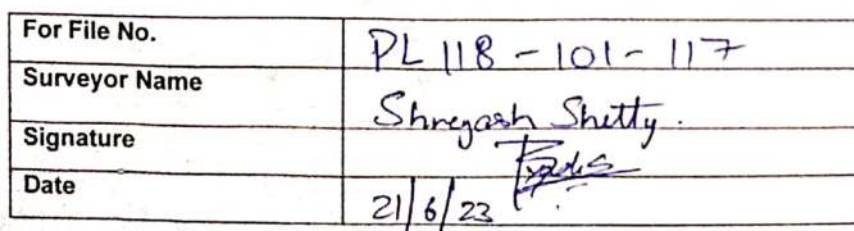 For File No. PL 118 - 101 - 117
Surveyor Name Shreyash Shetty.
Signature
Date 21/6/23